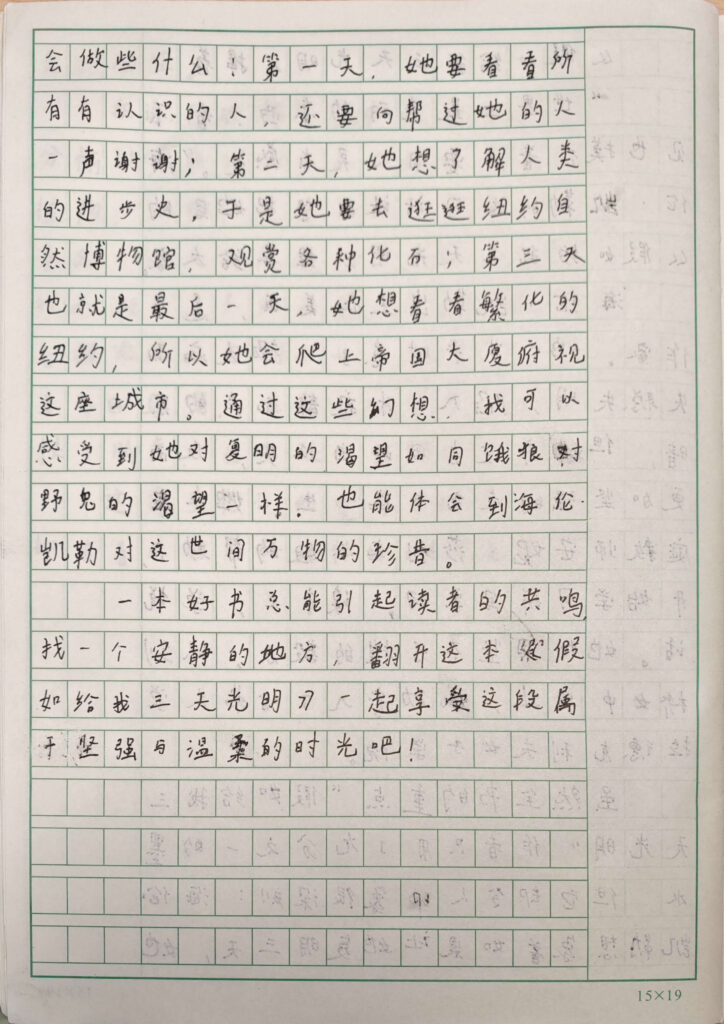 会做些什么：第一天，她要看看所
有有认识的人，还要向帮过她的人
一声谢谢；第二天，她想了解人类
的进步史，于是她要去逛逛纽约自
然博物馆，观赏各种化石；第三天
也就是最后一天，她想看看繁化的
纽约，所以她会爬上帝国大厦俯视
这座城市。通过这些幻想，我可以
感受到她对复明的渴望如同饿狼对
野兔的渴望一样。也能体会到海伦·
凯勒对这世间万物的珍昔。
一本好书总能引起读者的共鸣，
找一个安静的地方，翻开这本《假
如给我三天光明》一起享受这段属
于坚强与温柔的时光吧！
15×19